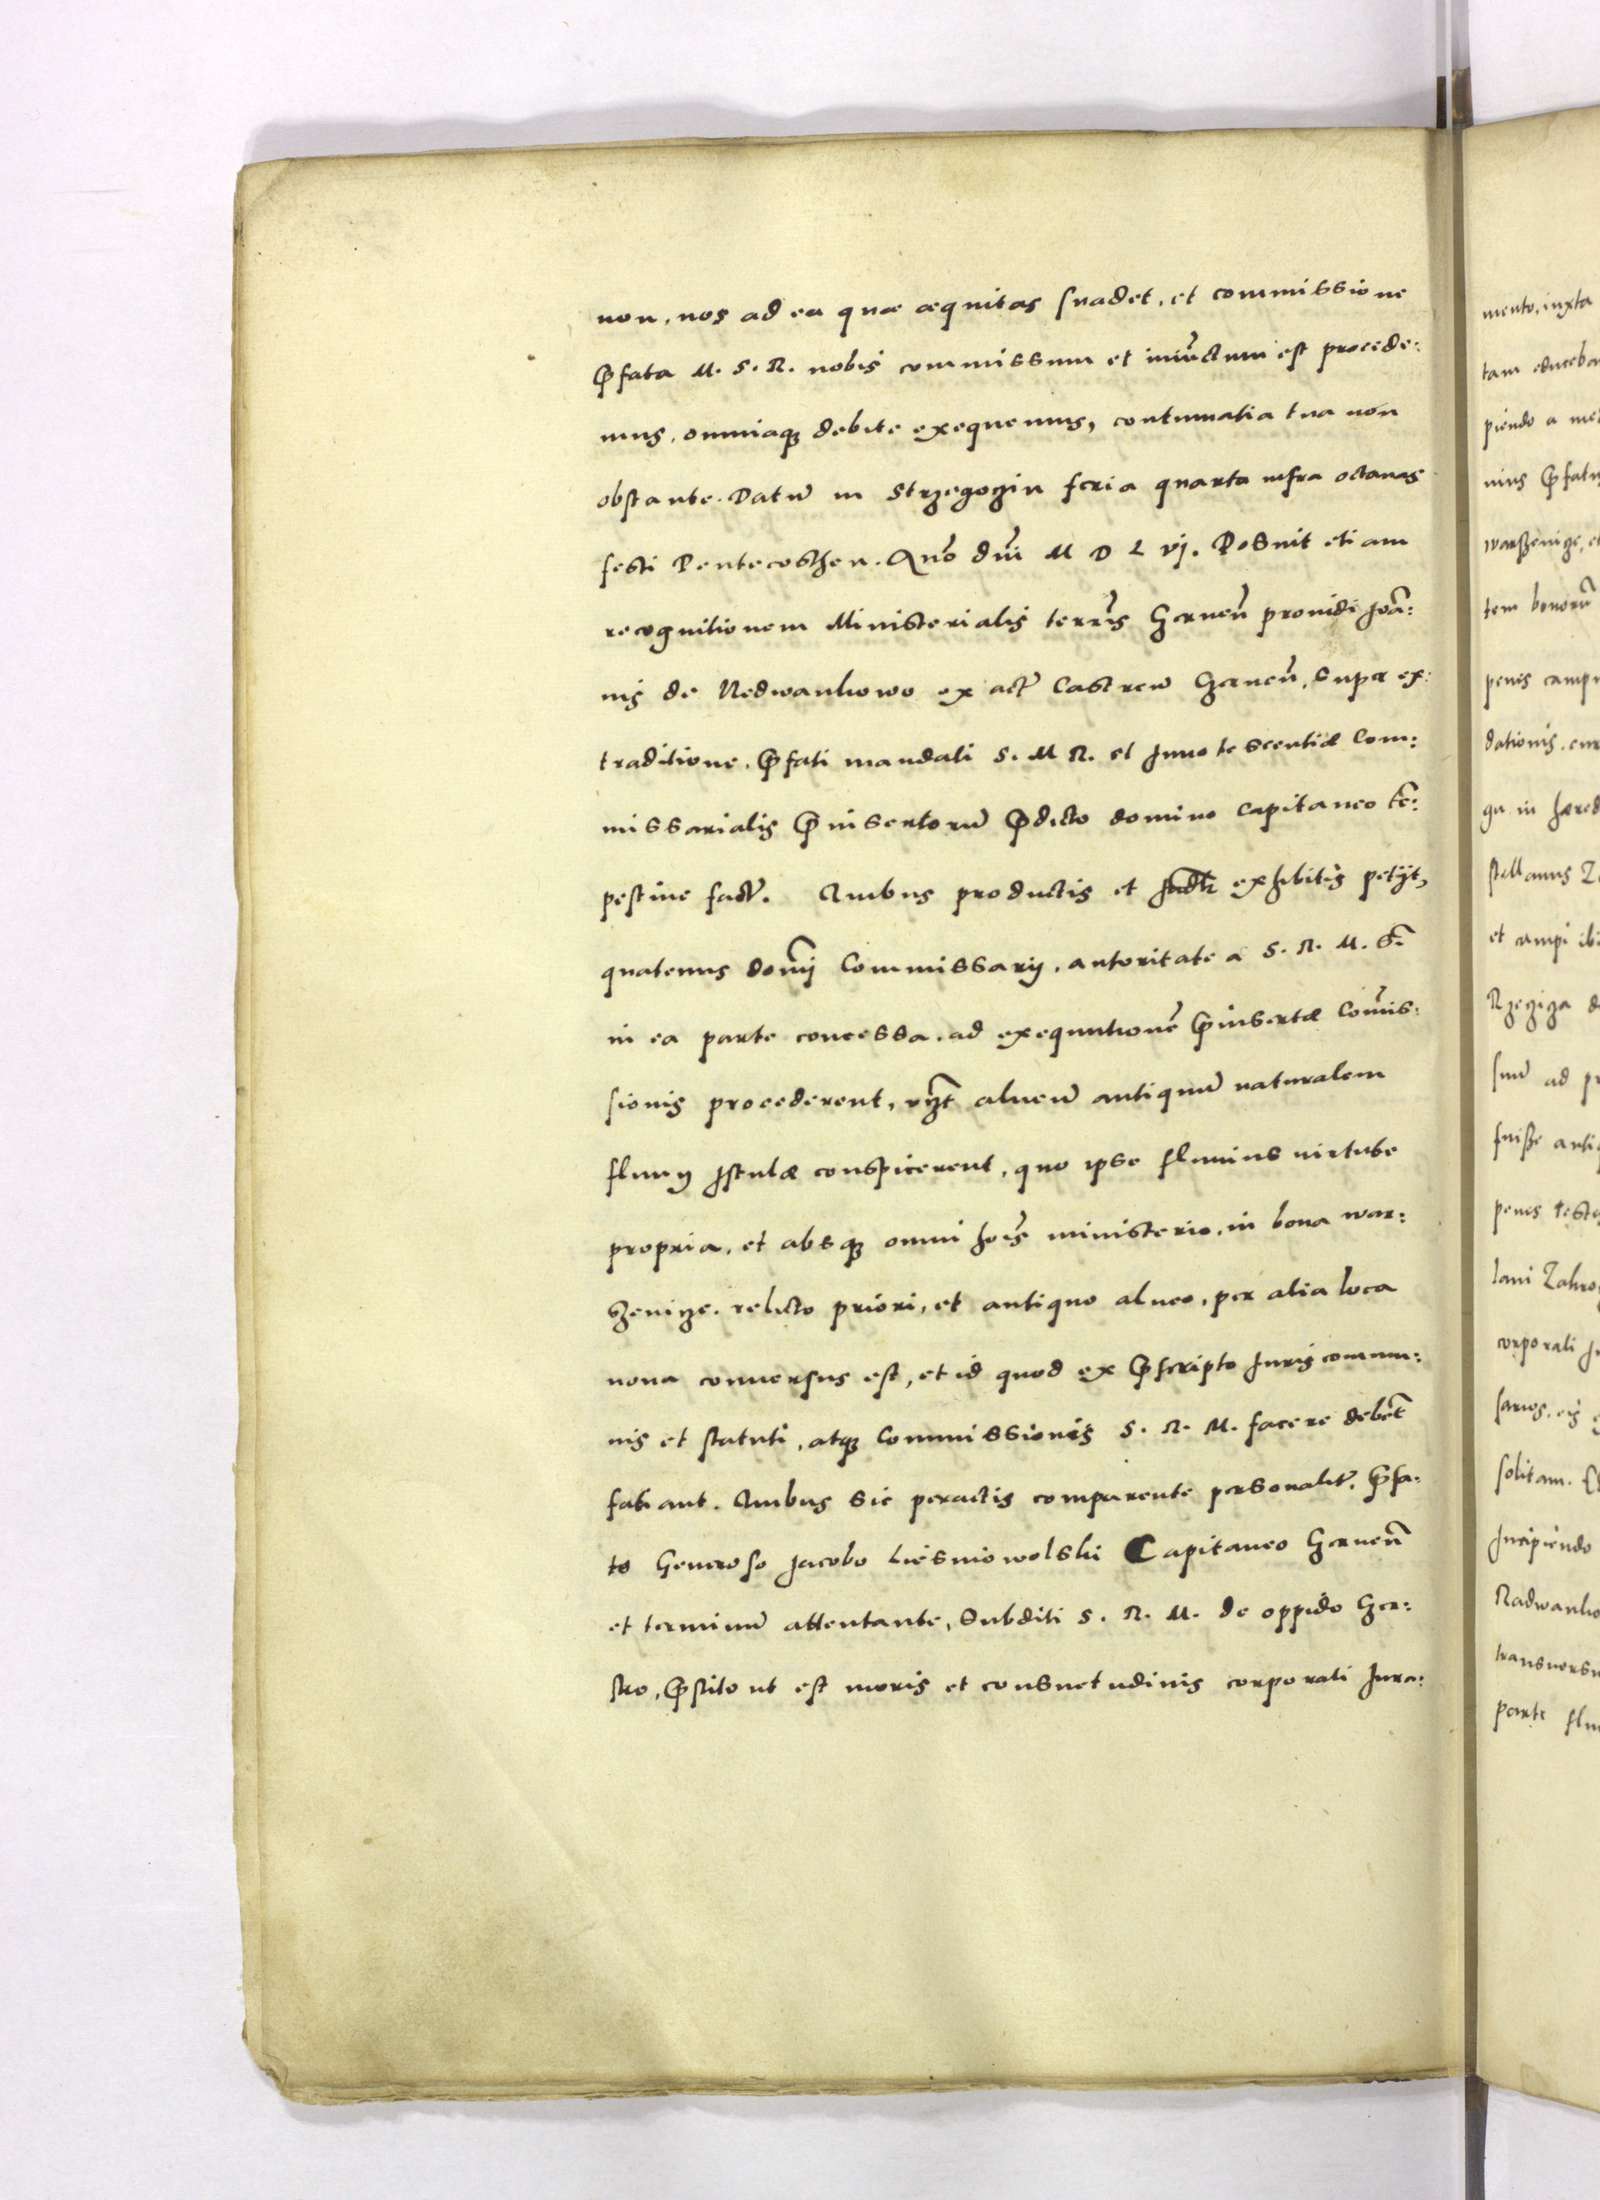 non, nos ad ea quæ æquitas suadet, et commissione
p̄fata M. S. R. nobis commissum et iniūctum est procede:
mus, omniaq; debite exequemur, contumatia tua non
obstante. Datū in Strzegoczin feria quarta infra octauas
festi Pentecosthen. Año dñi M D L vj. Posuit etiam
recognitionem Ministerialis terrīs Czerneñ prouidi Joā:
nis de Nedwankowo ex act Castreñ Czerneñ, super ex:
traditione, p̄fati mandati S. M R. et Innotescentiæ Com:
missarialis p̄insertorū p̄dicto domino Capitaneo tē:
pestiue fact. Quibus productis et exhibitis petijt,
quatenus domīj Commissarij, autoritate a S. R. M. s̄i
in ea parte concessa, ad exequutionē p̄insertæ Comīs:
sionis procederent, alueū antiquū naturalem
fluuij Istulæ conspicerent, quo ipse fluuius uirtute
propria, et absq; omni hoīs ministerio, in bona war:
szenicze, relicto priori, et antiquo alueo, per alia loca
noua conuersus est, et id quod ex p̄scripto Juris commu:
nis et statuti, atq; Commissionis S. R. M. facere debēt
fatiant. Quibus sic peractis comparente personalit, p̄fa:
to Generoso Jacobo Liesniowolski Capitaneo Czerneñ
et terminū attentante, Subditi S. R. M. de oppido Czer:
sko, p̄stito ut est moris et consuetudinis corporali Jura:
mento, iuxta
tam
piendo a
nius p̄fatu
warszenicze, et
tem bonorū
penes camp
dationis,
ga in hæred
stellanus
et campi ibi
Rzeczicza
suū ad
fuisse anti
penes
corporali
sarios, eis
solitam.
Incipiendo
Radwanko
transuers
parte flu